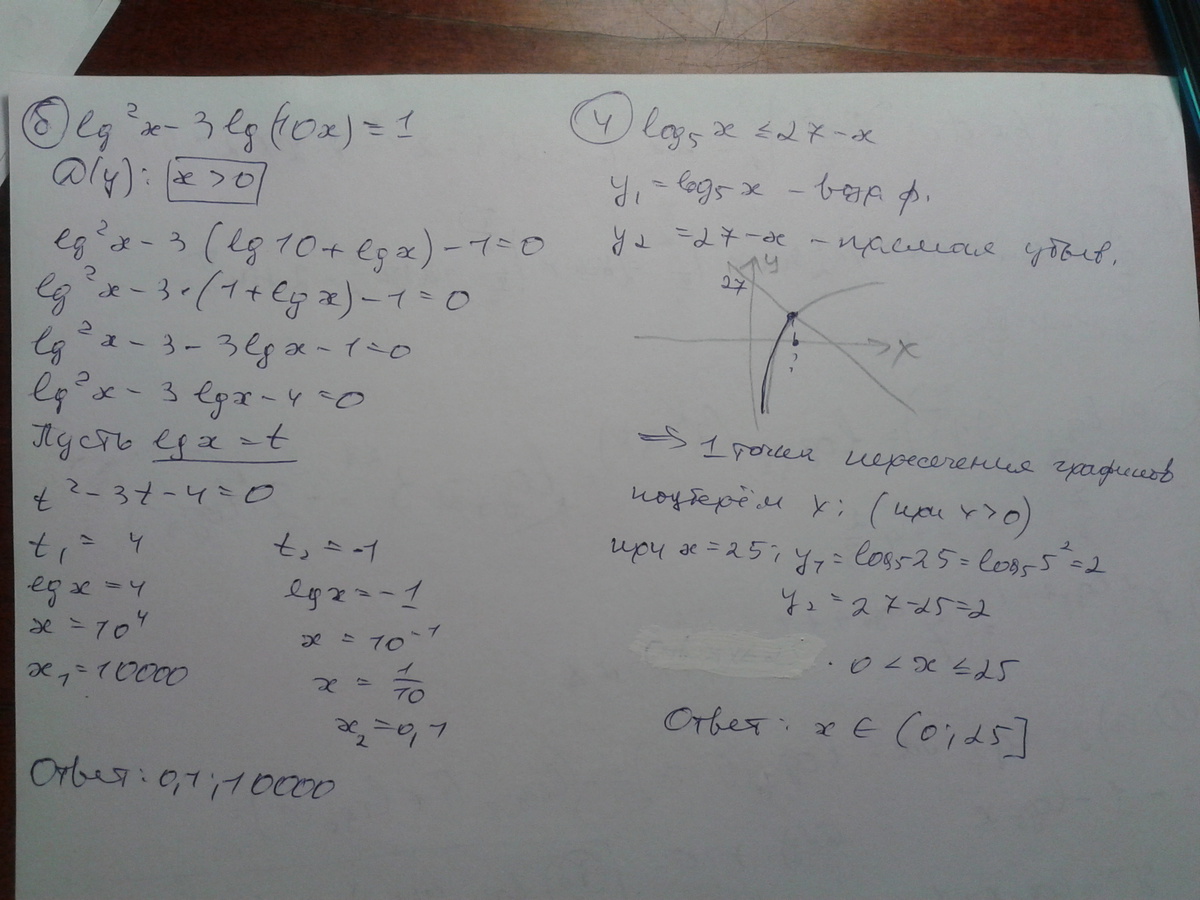 б) lg²x - 3lg(10x) = 1
D(y): x > 0
lg²x - 3(lg10 + lgx) - 1 = 0
lg²x - 3·(1 + lgx) - 1 = 0
lg²x - 3 - 3lgx - 1 = 0
lg²x - 3lgx - 4 = 0
Пусть lgx = t
t² - 3t - 4 = 0
t₁ = 4
lgx = 4
x = 10⁴
x₁ = 10000
t₂ = -1
lgx = -1
x = 10⁻¹
x = 1/10
x₂ = 0,1
Ответ: 0,1; 10000
4) log₅x ≤ 27 - x
y₁ = log₅x - возр. ф.
y₂ = 27 - x - прямая убыв.
y
27
x
?
⇒ 1 точка пересечения графиков
подберём x: (при x > 0)
при x = 25; y₁ = log₅25 = log₅5² = 2
y₂ = 27 - 25 = 2
0 < x ≤ 25
Ответ: x ∈ (0; 25]